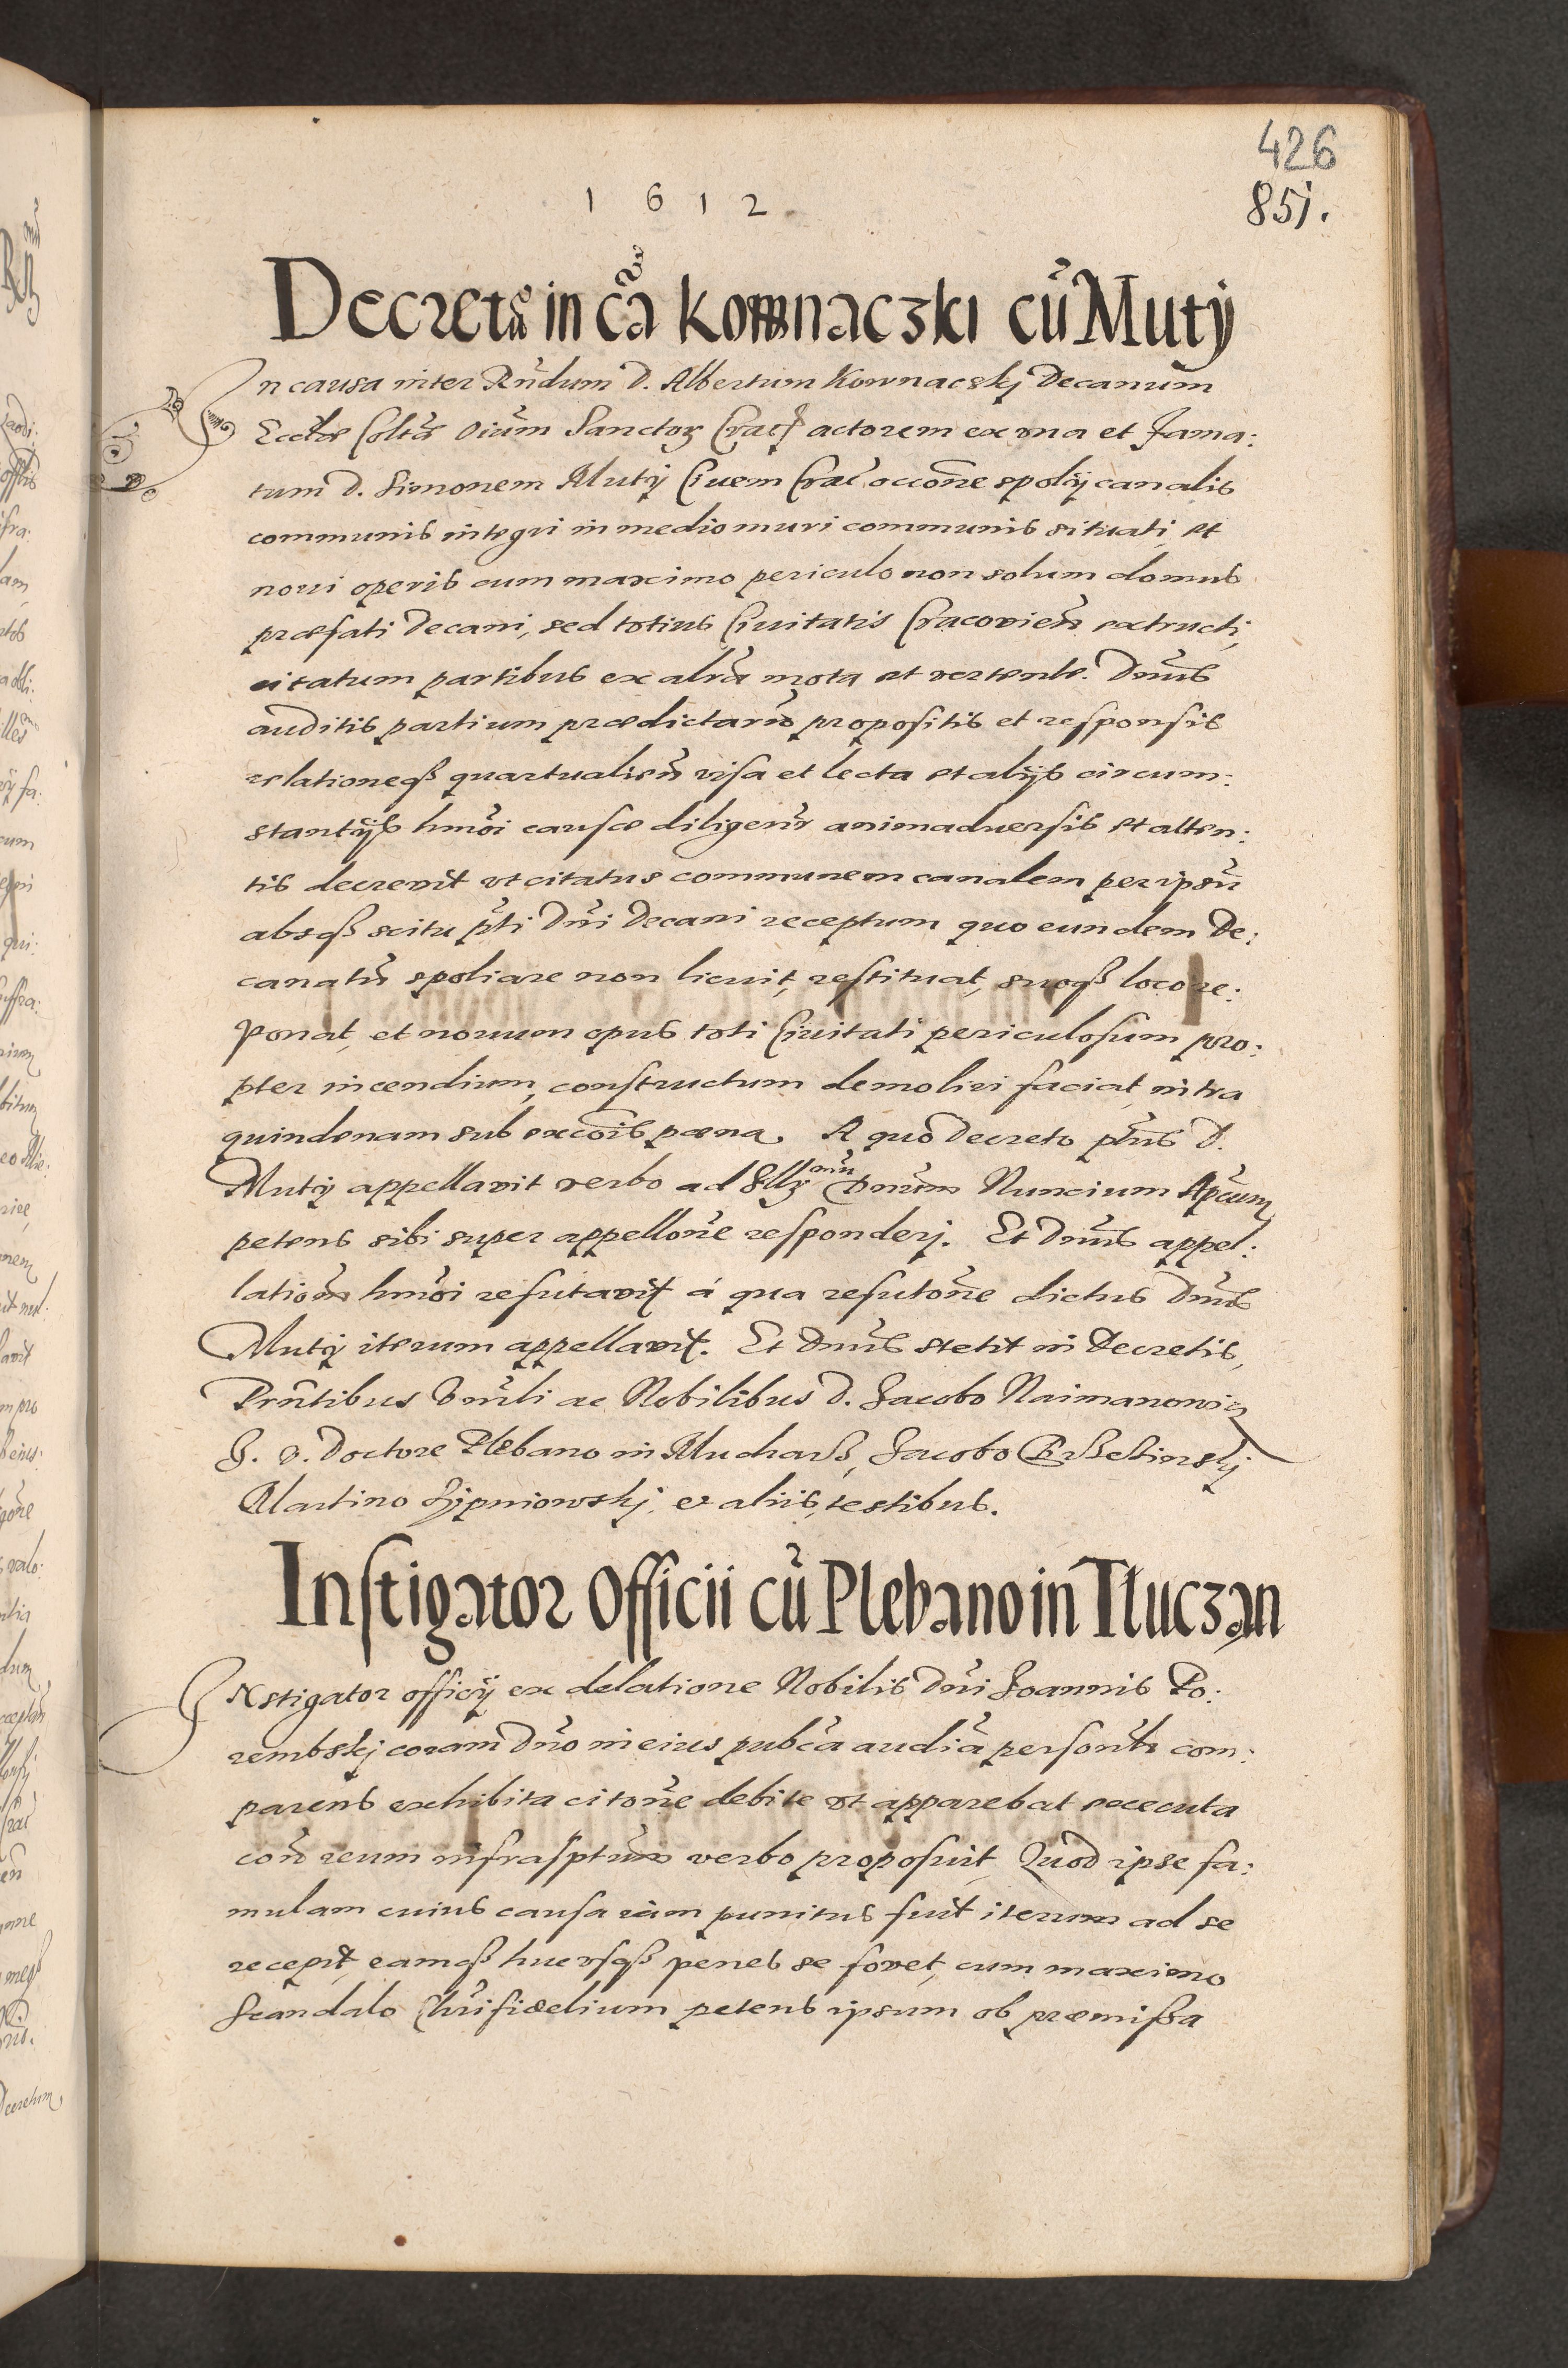 426
851.
1 6 1 2
Decretũ in cã Kownaczki cũ Mutÿ
In causa inter Rñdum D. Albertum Kownaczkj Decanum
Eccłæ Coltæ Oium Sanctoꝝ Crac̃ actorem ex vna et Fama:
tum D. Simonem Mutÿ Ciuem Crac̃ occõne spolÿ canalis
communis integri in medio muri communis situati, et
noui operis cum maximo periculo non solum domus
præfati Decani, sed totius Ciuitatis Cracovień extructi,
citatum partibus ex altã mota et vertente. Dñus
auditis partium prædictarũ propositis et responsis
relationeqȝ quartualień visa et lecta et alÿs circum:
stantÿs hmõi causæ diligenr̃ animaduersis et atten:
tis decrevit vt citatus communem canalem per ipsũ
absqȝ scitu pti Dñi Decani receptum quo eundem De:
canatũ spoliare non licuit, restituat, suoqȝ loco re:
ponat, et nouum opus toti Ciuitati periculosum pro:
pter incendium, constructum demoliri faciat intra
quindenam sub excõis pæna. A quo Decreto pñus D.
Mutÿ appellavit verbo ad Illꝝ mũ Dnum Nuncium Apĉum
petens sibi super appellõne responderj. Et Dñus appel:
lationẽ hmõi refutavit á qua refutõne dictus Dñus
Mutÿ iterum appellavit. Et Dñus stetit in Decretis,
Prñtibus Vñli ac Nobilibus D. Jacobo Naimanowicz
J. V. Doctore Plebano in Mucharȝ, Jacobo Brzezinskj
Martino Zypniowskj, et aliis, testibus.
Instigator Officii cũ Plebano in Tłuczan
INstigator officÿ ex delatione Nobilis Dñi Joannis Po:
rembskj coram Dño in eius pubĉa audĩa personlr̃ com:
parens exhibita citõne debite vt apparebat executa
coñ reum infrasptum verbo proposuit, Quod ipse fa:
mulam cuius causa iam punitus fuit iterum ad se
recepit, eamqȝ hucusqȝ penes se fovet, cum maximo
Scandalo Chrĩfidelium petens ipsum ob præmissa